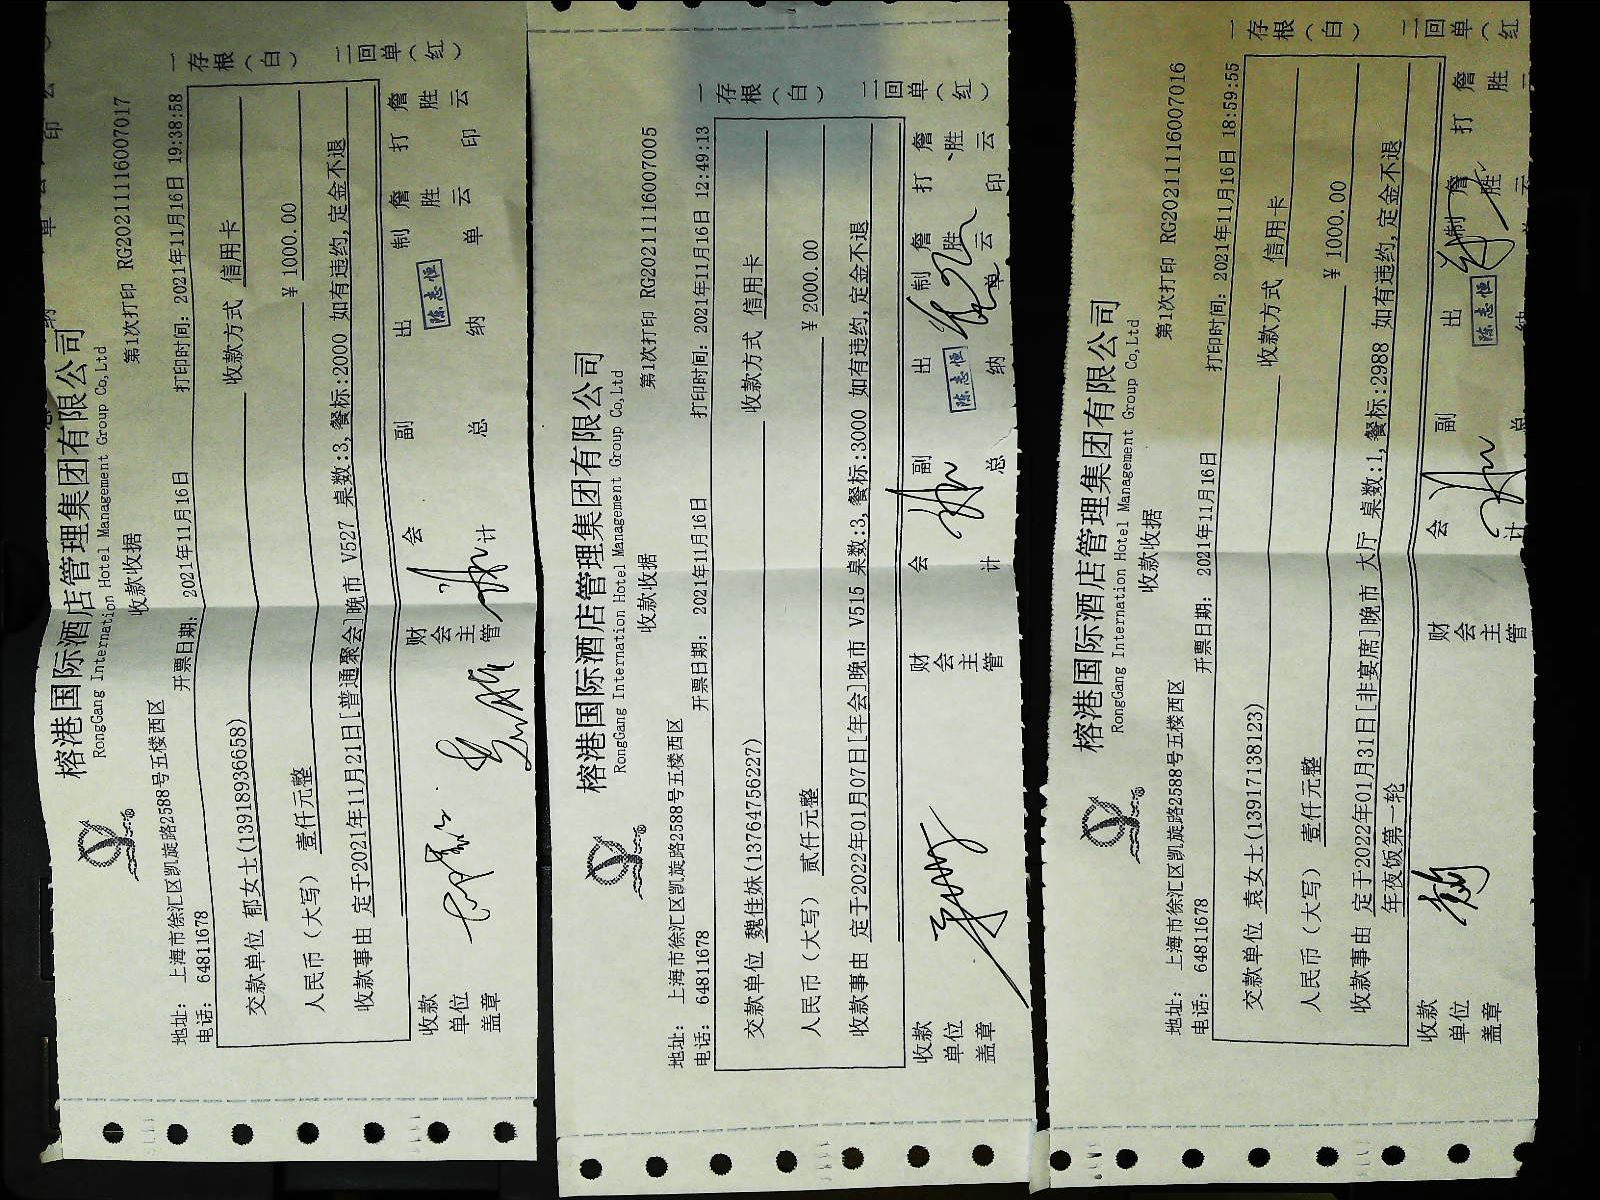 榕港国际酒店管理集团有限公司
RongGang Internation Hotel Management Group Co,Ltd
收款收据
第1次打印 RG20211116007017
地址: 上海市徐汇区凯旋路2588号五楼西区
电话: 64811678
开票日期: 2021年11月16日
打印时间: 2021年11月16日 19:38:58
交款单位 郁女士(13918936658)
收款方式 信用卡
人民币（大写） 壹仟元整
¥ 1000.00
收款事由 定于2021年11月21日[普通聚会]晚市 V527 桌数:3,餐标:2000 如有违约,定金不退
收款单位盖章
财会主管
会计
副总
出纳
陈志恒
制单
詹胜云
打印
詹胜云
一存根（白）
二回单（红）
榕港国际酒店管理集团有限公司
RongGang Internation Hotel Management Group Co,Ltd
收款收据
第1次打印 RG20211116007005
地址: 上海市徐汇区凯旋路2588号五楼西区
电话: 64811678
开票日期: 2021年11月16日
打印时间: 2021年11月16日 12:49:13
交款单位 魏佳妹(13764756227)
收款方式 信用卡
人民币（大写） 贰仟元整
¥ 2000.00
收款事由 定于2022年01月07日[年会]晚市 V515 桌数:3,餐标:3000 如有违约,定金不退
收款单位盖章
财会主管
会计
副总
出纳
陈志恒
制单
詹胜云
打印
詹胜云
一存根（白）
二回单（红）
榕港国际酒店管理集团有限公司
RongGang Internation Hotel Management Group Co,Ltd
收款收据
第1次打印 RG20211116007016
地址: 上海市徐汇区凯旋路2588号五楼西区
电话: 64811678
开票日期: 2021年11月16日
打印时间: 2021年11月16日 18:59:55
交款单位 袁女士(13917138123)
收款方式 信用卡
人民币（大写） 壹仟元整
¥ 1000.00
收款事由 定于2022年01月31日[非宴席]晚市 大厅 桌数:1,餐标:2988 如有违约,定金不退
年夜饭第一轮
收款单位盖章
财会主管
会计
副总
出纳
陈志恒
制
詹胜
打
詹胜
一存根（白）
二回单（红